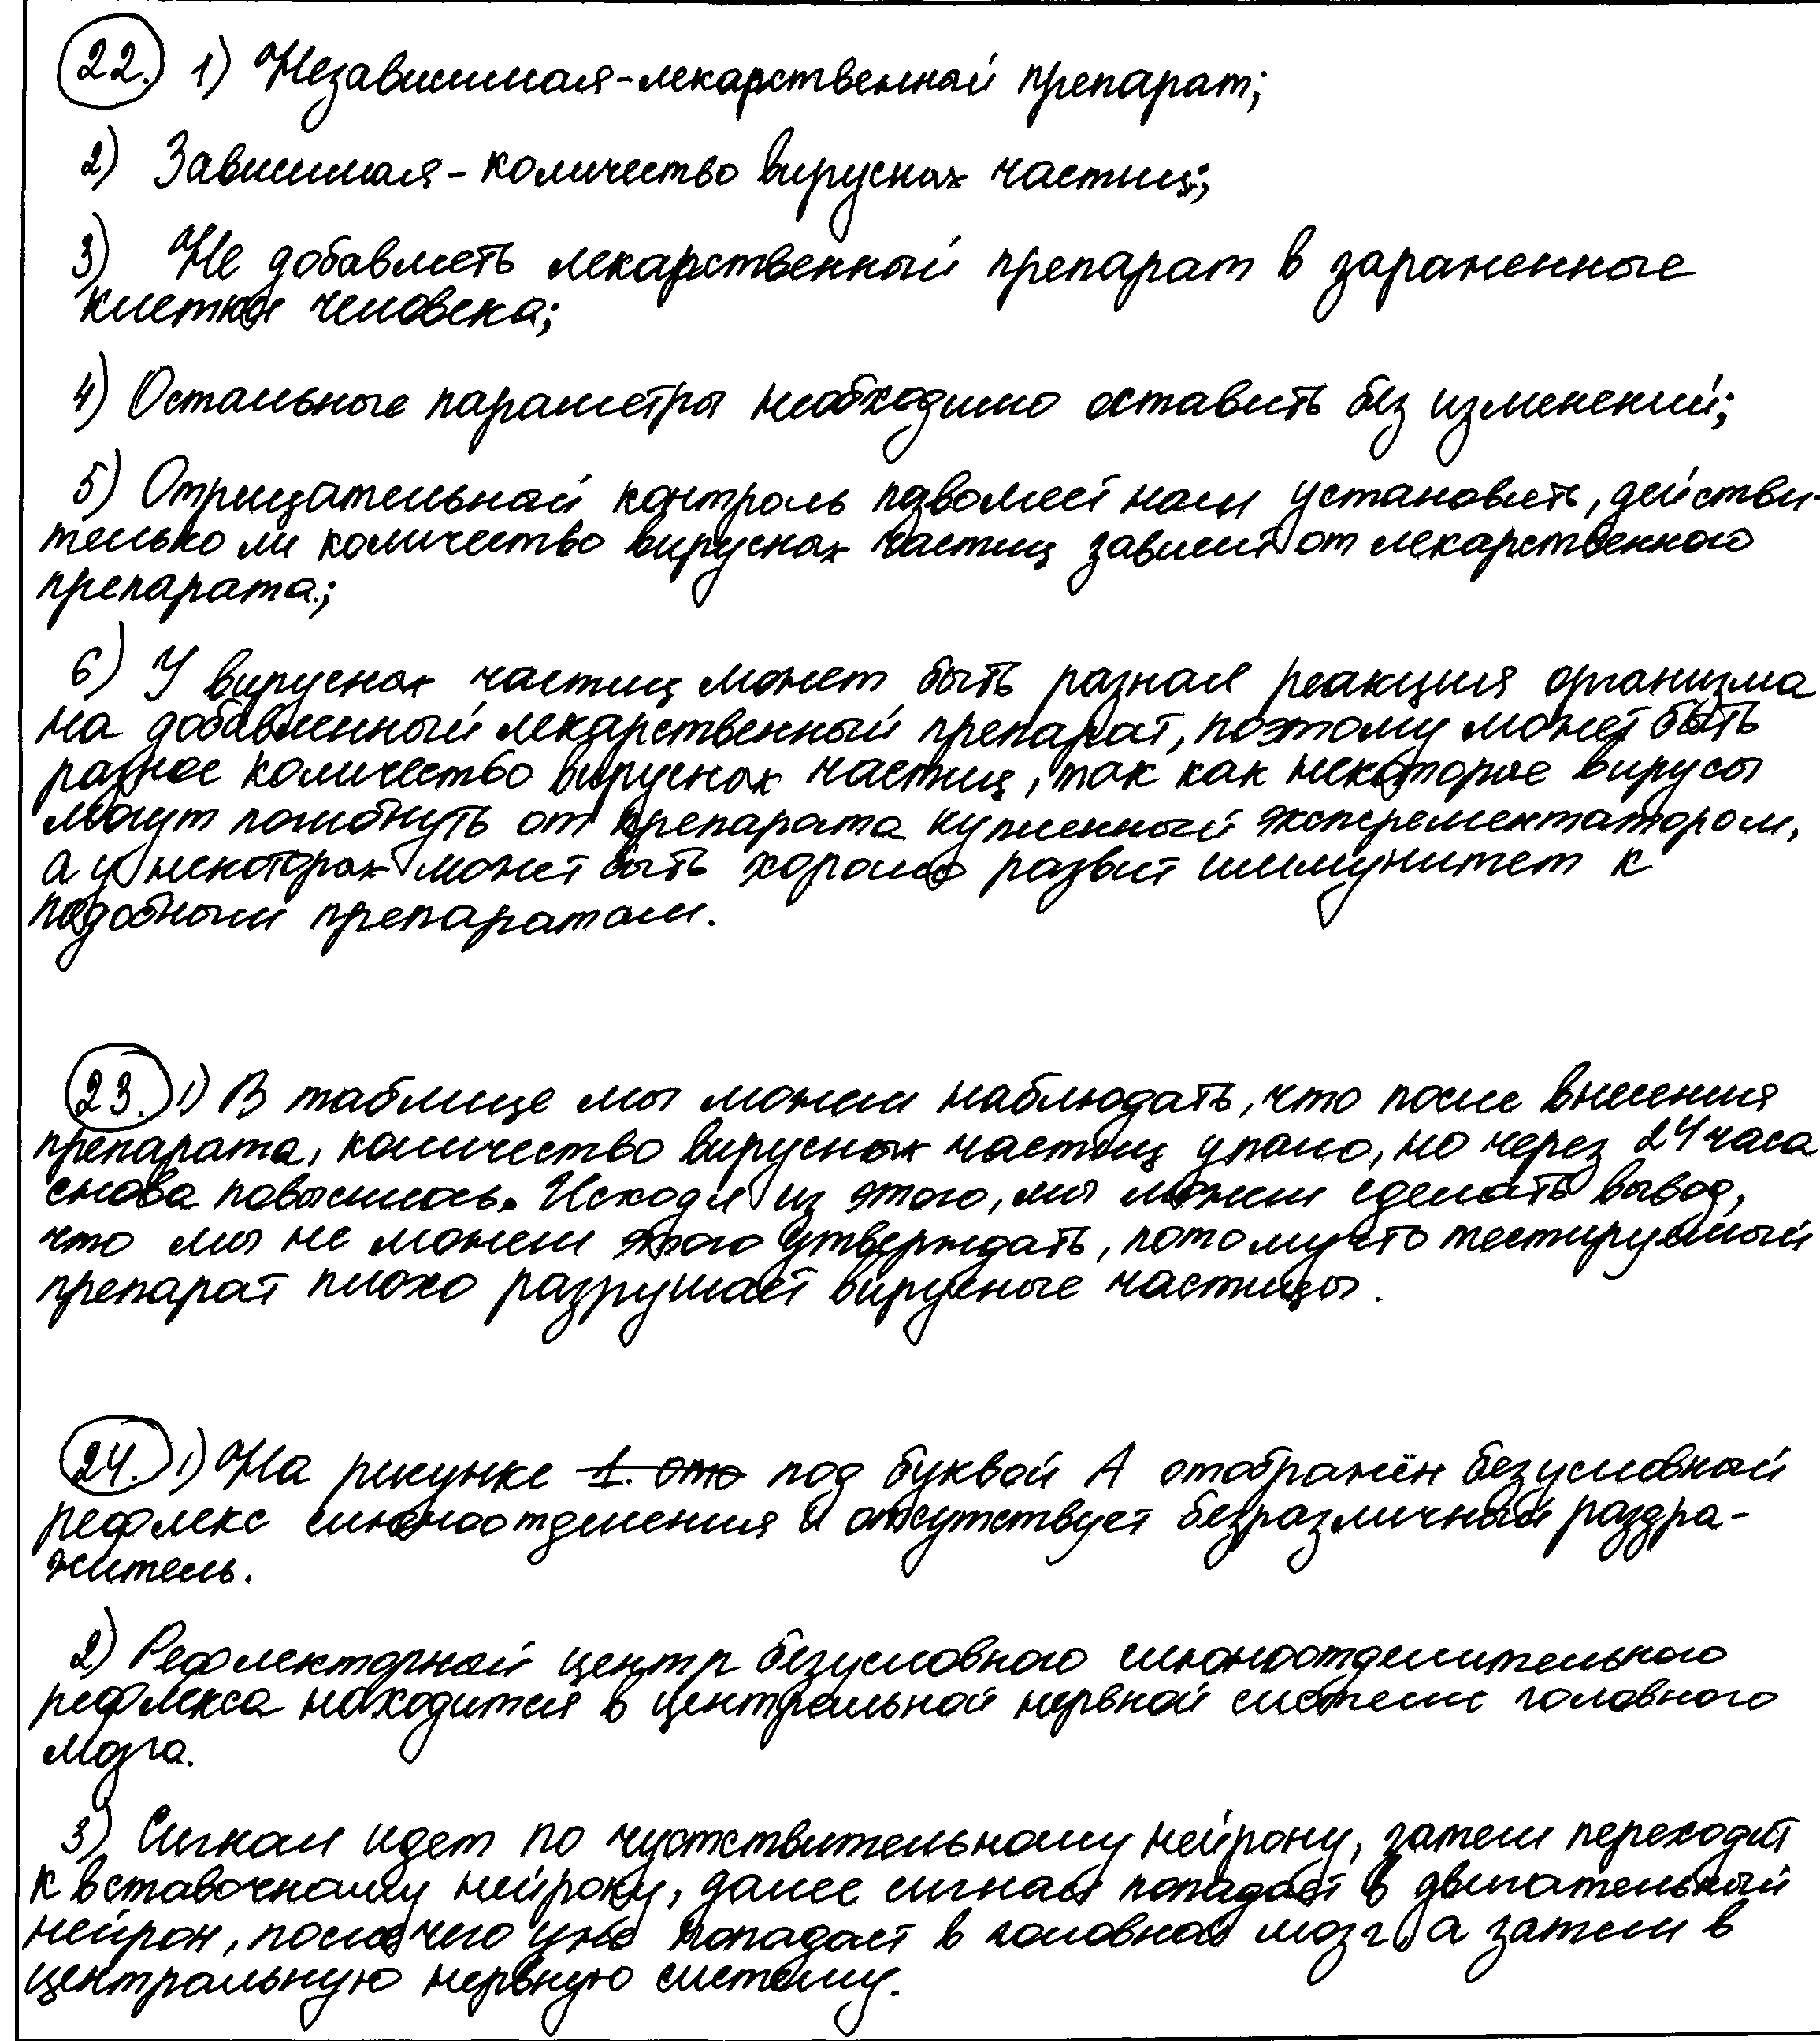 22. 1) Независимая-лекарственный препарат;
2) Зависимая-количество вирусных частиц;
3) Не добавлять лекарственный препарат в зараженные
клетки человека;
4) Остальные параметры необходимо оставить без изменений;
5) Отрицательный контроль позволяет нам установить, действи-
тельно ли количество вирусных частиц зависит от лекарственного
препарата;
6) У вирусных частиц может быть разная реакция организма
на добавленный лекарственный препарат, поэтому может быть
разное количество вирусных частиц, так как некоторые вирусы
могут погибнуть от препарата купленный эксперементатором,
а у некоторых может быть хорошо развит иммунитет к
подобным препаратам.
23. 1) В таблице мы можем наблюдать, что после внесения
препарата, количество вирусных частиц упало, но через 24 часа
снова повысилось. Исходя из этого, мы можем сделать вывод,
что мы не можем этого утверждать, потому что тестируемый
препарат плохо разрушает вирусные частицы.
24. 1) На рисунке 1. это под буквой А отображён безусловный
рефлекс слюноотделения и отсутствует безразличный раздра-
житель.
2) Рефлекторный центр безусловного слюноотделительного
рефлекса находится в центральной нервной системе головного
мозга.
3) Сигнал идет по чуствствительному нейрону, затем переходит
к вставочному нейрону, далее сигнал попадает в двигательный
нейрон, после чего уже попадает в головной мозг, а затем в
центральную нервную систему.